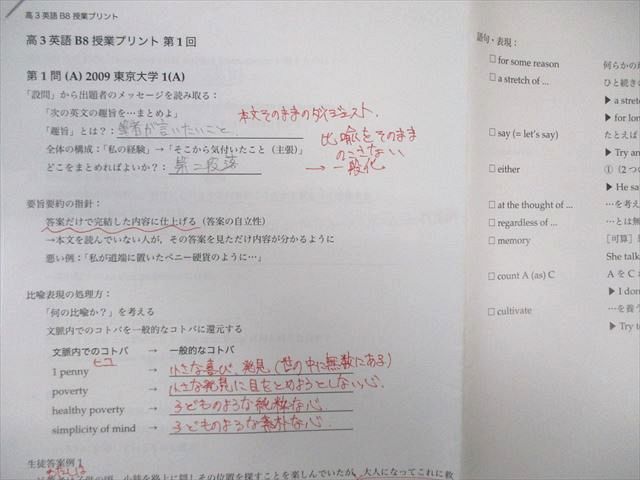 高3英語 B8 授業プリント
高3英語 B8 授業プリント 第1回
第1問 (A) 2009 東京大学 1(A)
「設問」から出題者のメッセージを読み取る：
「次の英文の趣旨を…まとめよ」
本文そのままのダイジェスト.
「趣旨」とは？: 筆者が言いたいこと.
比喩をそのまま
のこさない
→ 一般化
全体の構成：「私の経験」→「そこから気付いたこと（主張）」
どこをまとめればよいか？: 第二段落
要旨要約の指針：
答案だけで完結した内容に仕上げる（答案の自立性）
→本文を読んでいない人が、その答案を見ただけ内容が分かるように
悪い例：「私が道端に置いたペニー硬貨のように…」
比喩表現の処理方：
「何の比喩か？」を考える
文脈内でのコトバを一般的なコトバに還元する
文脈内でのコトバ → 一般的なコトバ
1 penny → 小さな喜び、発見 (世の中に無数にある)
poverty → 小さな発見に目をとめようとしない心
healthy poverty → 子どものような純粋な心.
simplicity of mind → 子どものような素朴な心.
生徒答案例 1
の頃、小銭を路上に隠しその位置を探すことを楽しんでいたが、大人になってこれに救
語句・表現：
□ for some reason 何らかの
□ a stretch of ... ひと続き
▶ a stret
▶ for lon
□ say (= let's say) たとえば
▶ Try an
□ either ① (2つ
② そ
□ at the thought of ... …を考え
□ regardless of ... …とは無
□ memory [可算]
She talk
□ count A (as) C A を C
▶ I don
□ cultivate …を養う
▶ Try t